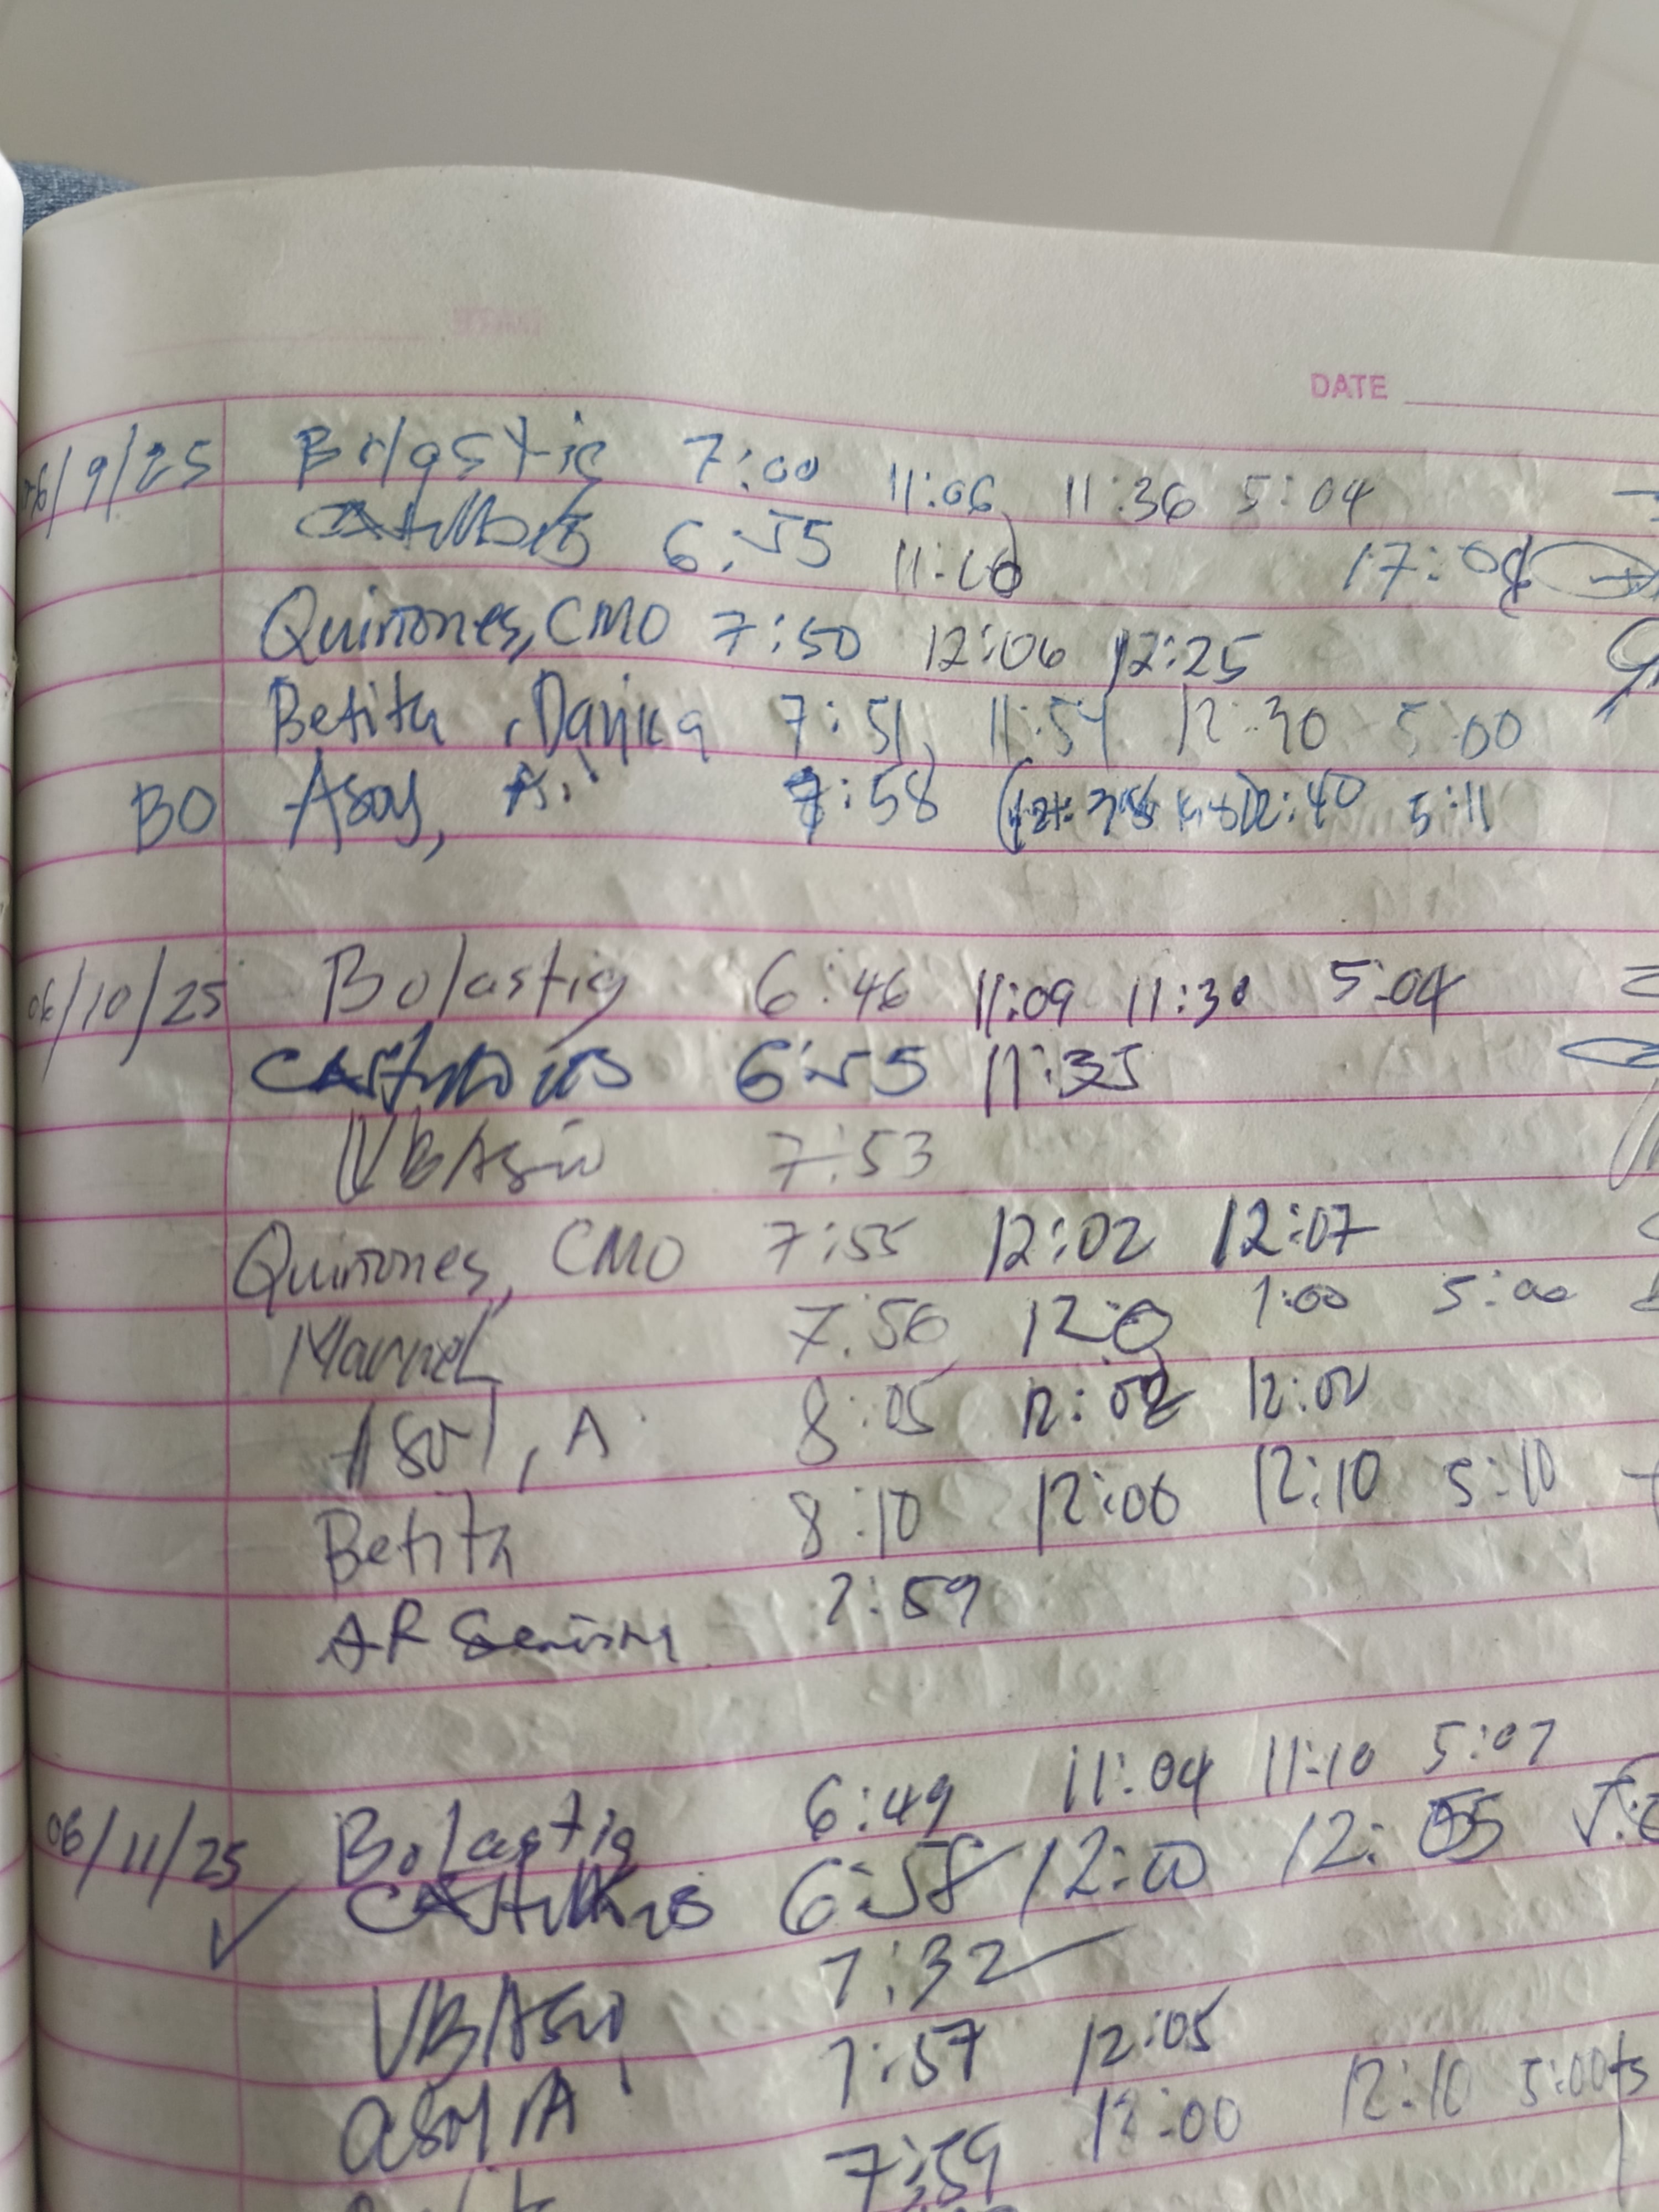 DATE
06/9/25 Bolastig 7:00 11:06 11:36 5:04
6:55 11:10 17:08
Quiñones, CMO 7:50 12:06 12:25
Betita, Danica 7:51 11:54 12:30 5:00
BO Asoy, A. 7:58 12:40 5:11
06/10/25 Bolastig 6:46 11:09 11:30 5:04
6:55 11:35
VBAsio 7:53
Quiñones, CMO 7:55 12:02 12:07
7:56 1:00 5:00
Asoy, A 8:05 12:02 12:02
Betita 8:10 12:06 12:10 5:10
AR 7:59
06/11/25 Bolastig 6:49 11:04 11:10 5:07
6:58 12:00 12:05
VBAsio 7:32
Asoy, A 7:57 12:05
7:59 12:00 12:10 5:00